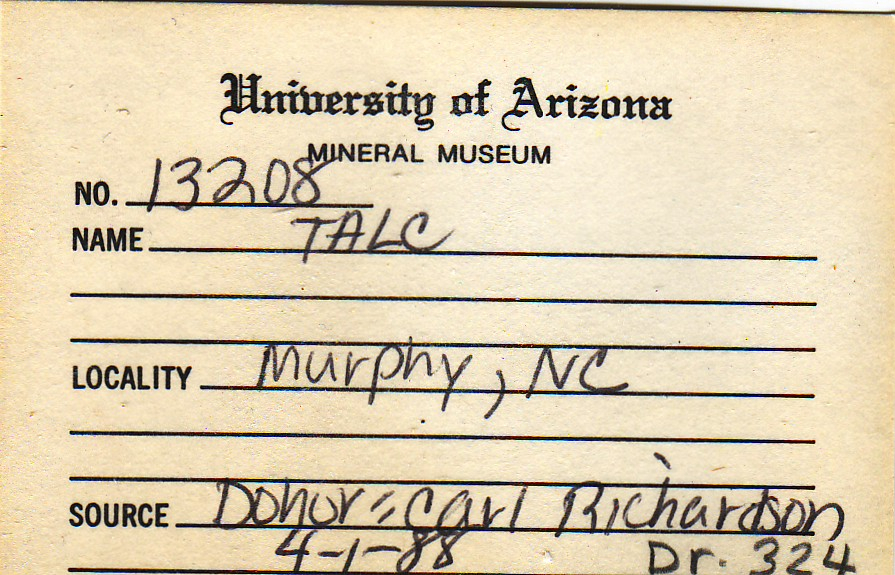 University of Arizona
MINERAL MUSEUM
NO. 13208
NAME TALC
LOCALITY Murphy, NC
SOURCE Donor = Carl Richardson
4-1-88 Dr. 324